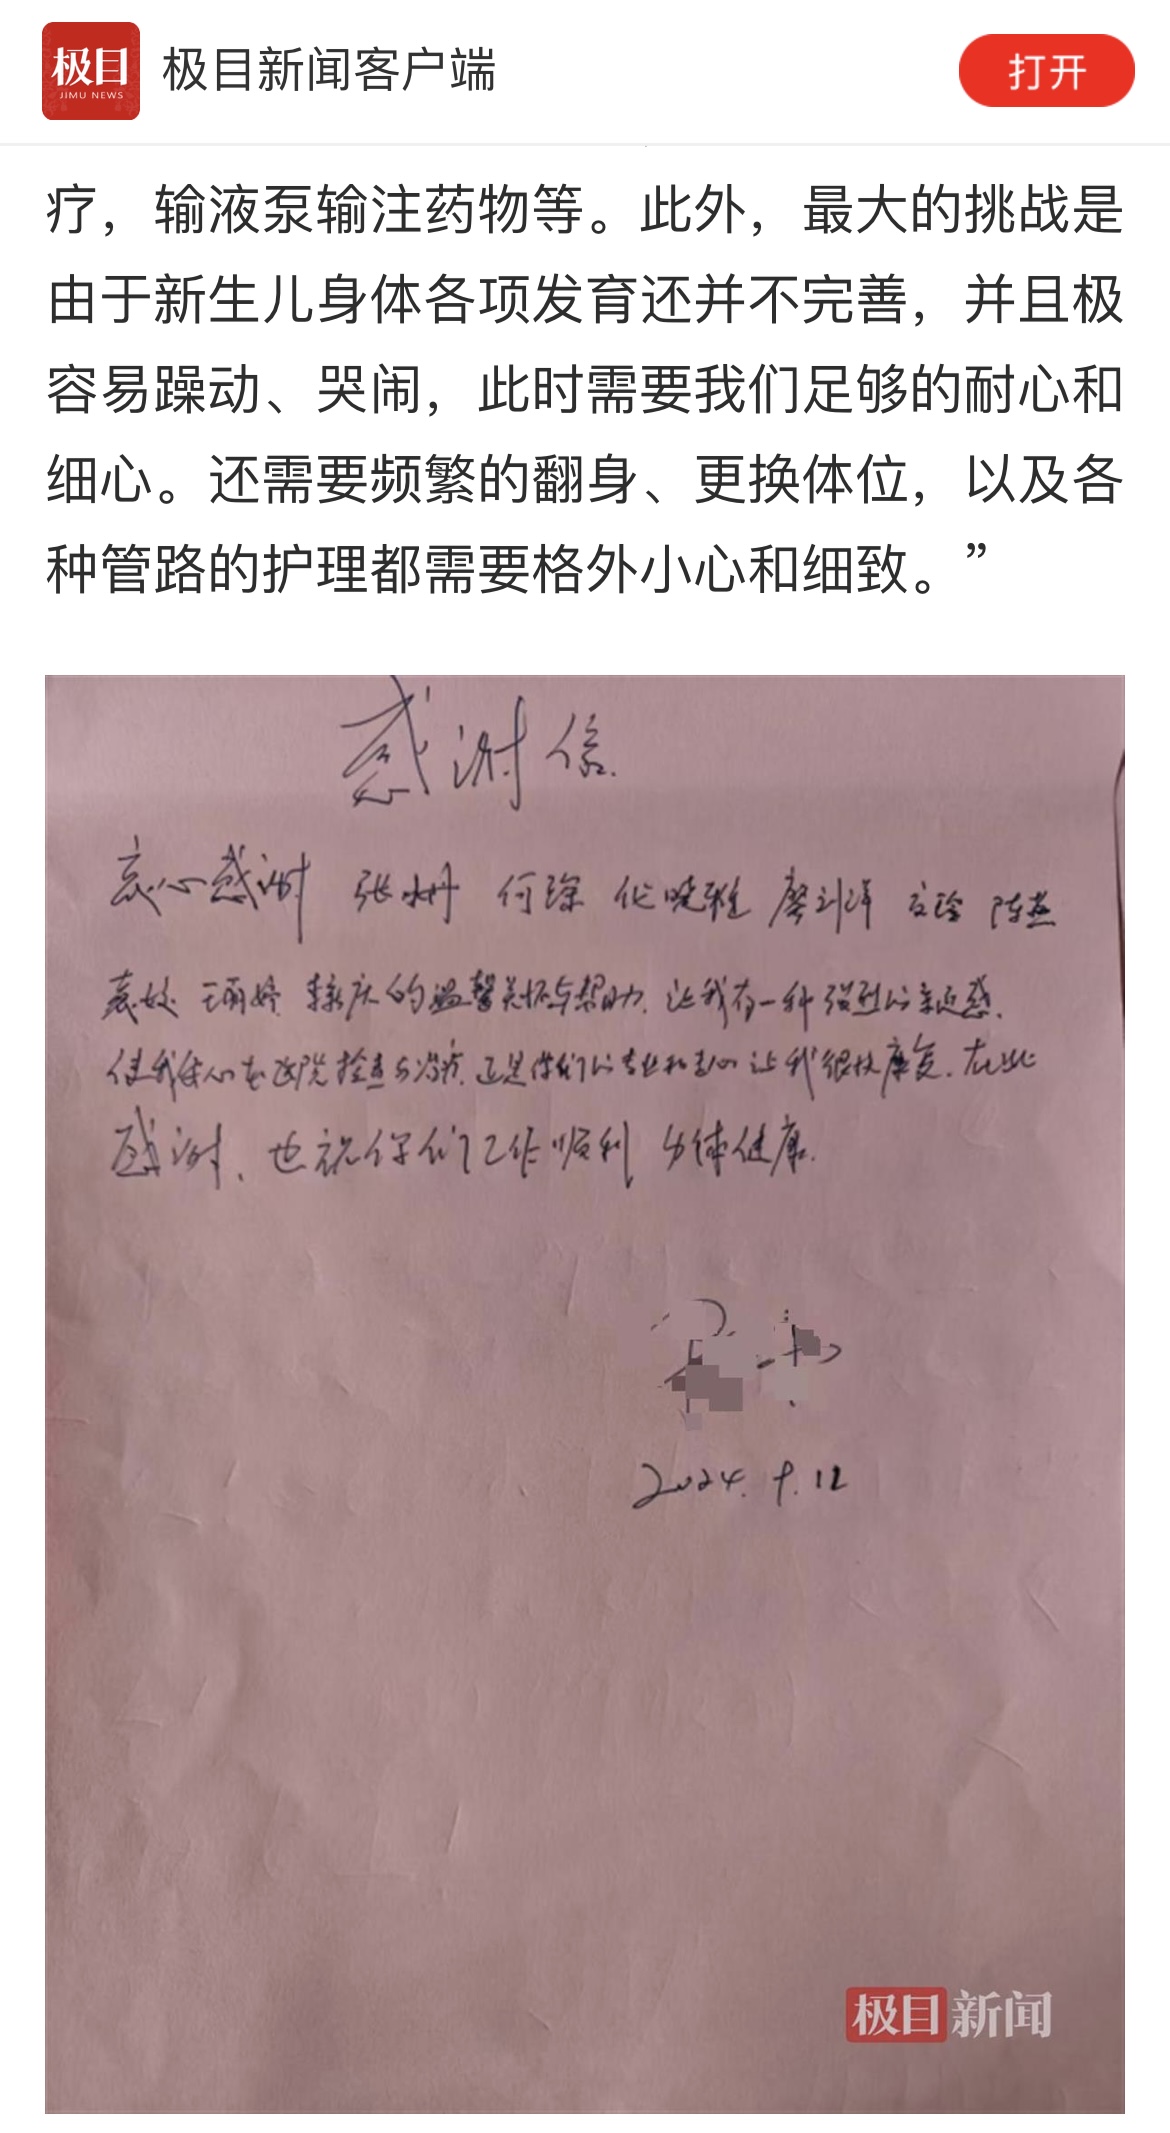 极目
JIMU NEWS
极目新闻客户端
打开
疗，输液泵输注药物等。此外，最大的挑战是
由于新生儿身体各项发育还并不完善，并且极
容易躁动、哭闹，此时需要我们足够的耐心和
细心。还需要频繁的翻身、更换体位，以及各
种管路的护理都需要格外小心和细致。”
感谢信
衷心感谢 张 何琛 晓雅 廖 陈燕
袁姣 王丽婷 的温馨关怀与帮助。让我有一种强烈的亲近感。
使我安心在医院检查与治疗。正是你们的专业和 让我很快康复。在此
感谢、也祝你们工作顺利 身体健康.
2024.9.12
极目新闻